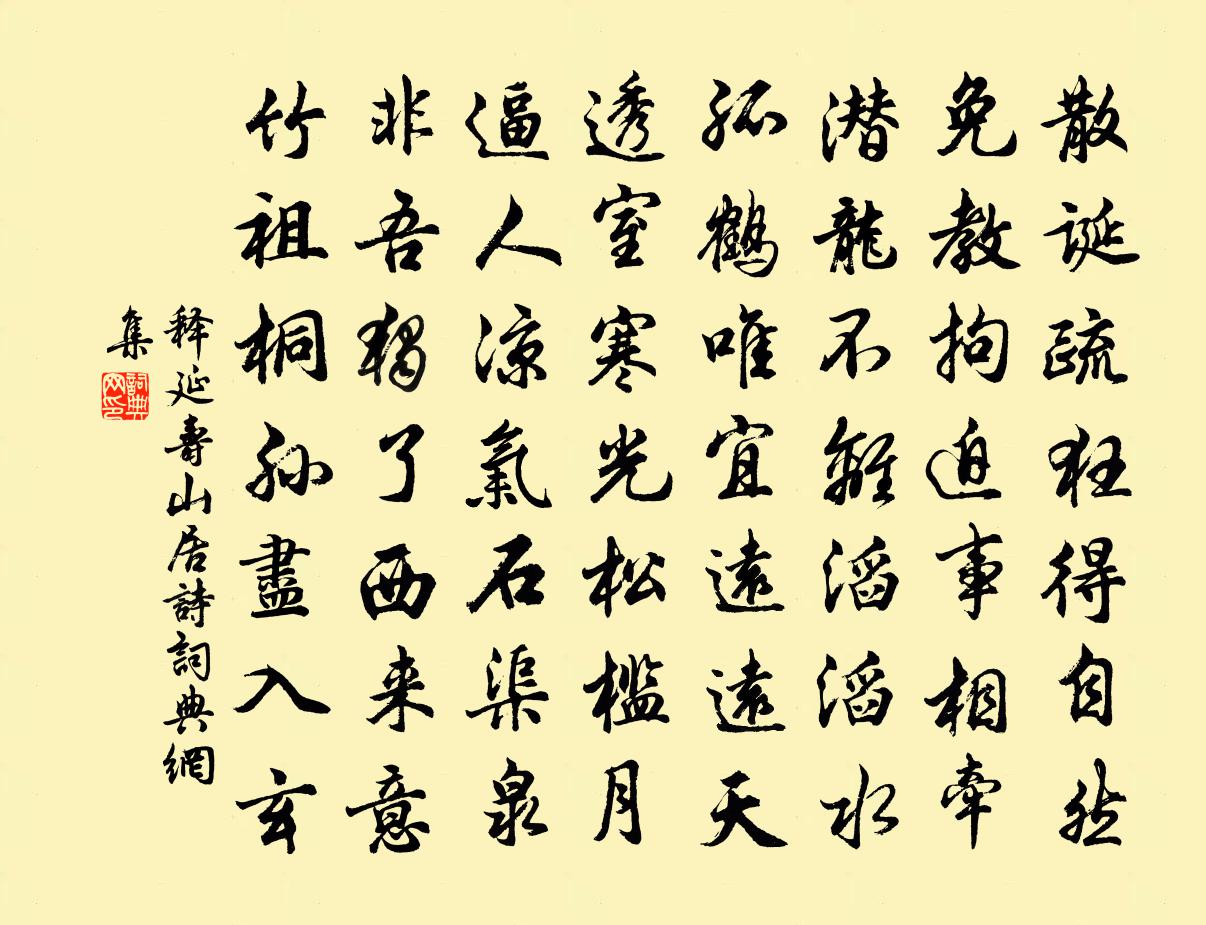 散誕疏狂得自然
免教拘迫事相牽
潜龍不離滔滔水
孤鶴唯宜遠遠天
透室寒光松檻月
逼人涼氣石渠泉
非吾獨了西来意
竹祖桐孙盡入玄
释延壽山居詩詞典網
集
詞典
网印